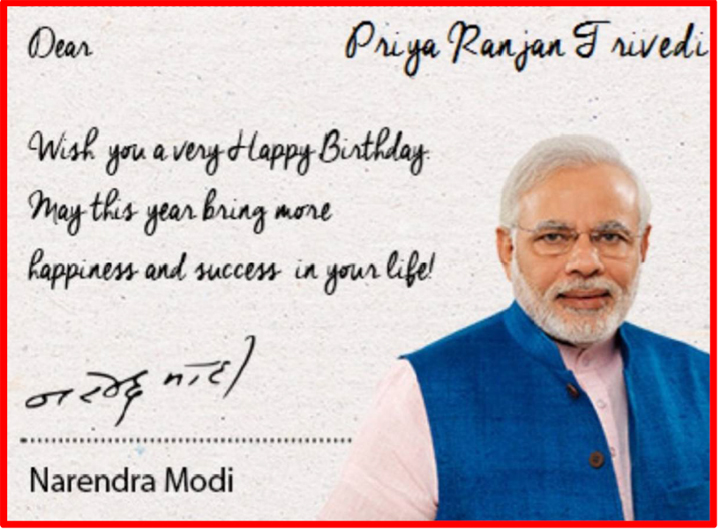 Dear Priya Ranjan Trivedi
Wish you a very Happy Birthday.
May this year bring more
happiness and success in your life!
नरेन्द्र मोदी
Narendra Modi